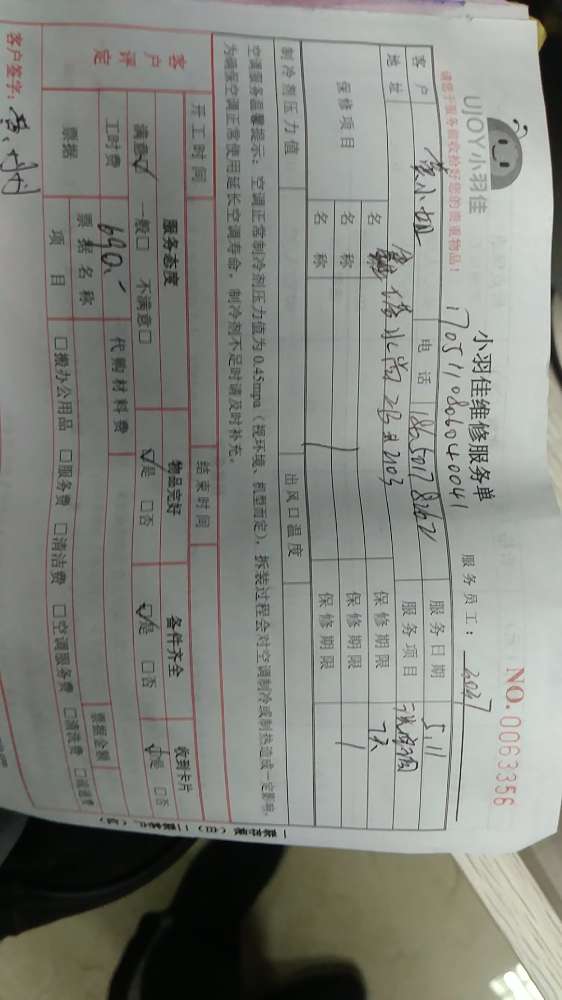 UJOY小羽佳
小羽佳维修服务单
NO.0063356
请您于服务前收拾好您的贵重物品!
服务员工:
客户
电话
服务日期 5.11
地址
2103
服务项目
保修项目
名称
保修期限 7天
名称
保修期限
名称
保修期限
制冷剂压力值
出风口温度
空调服务温馨提示:空调正常制冷剂压力值为0.45mpa(视环境、机型而定),拆装过程会对空调制冷或制热造成一定影响,
为确保空调正常使用延长空调寿命,制冷剂不足时请及时补充。
开工时间
结束时间
客户评定
服务态度
物品完好
备件齐全
收到卡片
满意☑ 一般□ 不满意□
☑是 □否
☑是 □否
☑是 □否
工时费 690.-
代购材料费
票据
票据名称
票据金额
项目
□搬办公用品 □服务费 □清洁费 □空调服务费 □清洗费
客户签字: